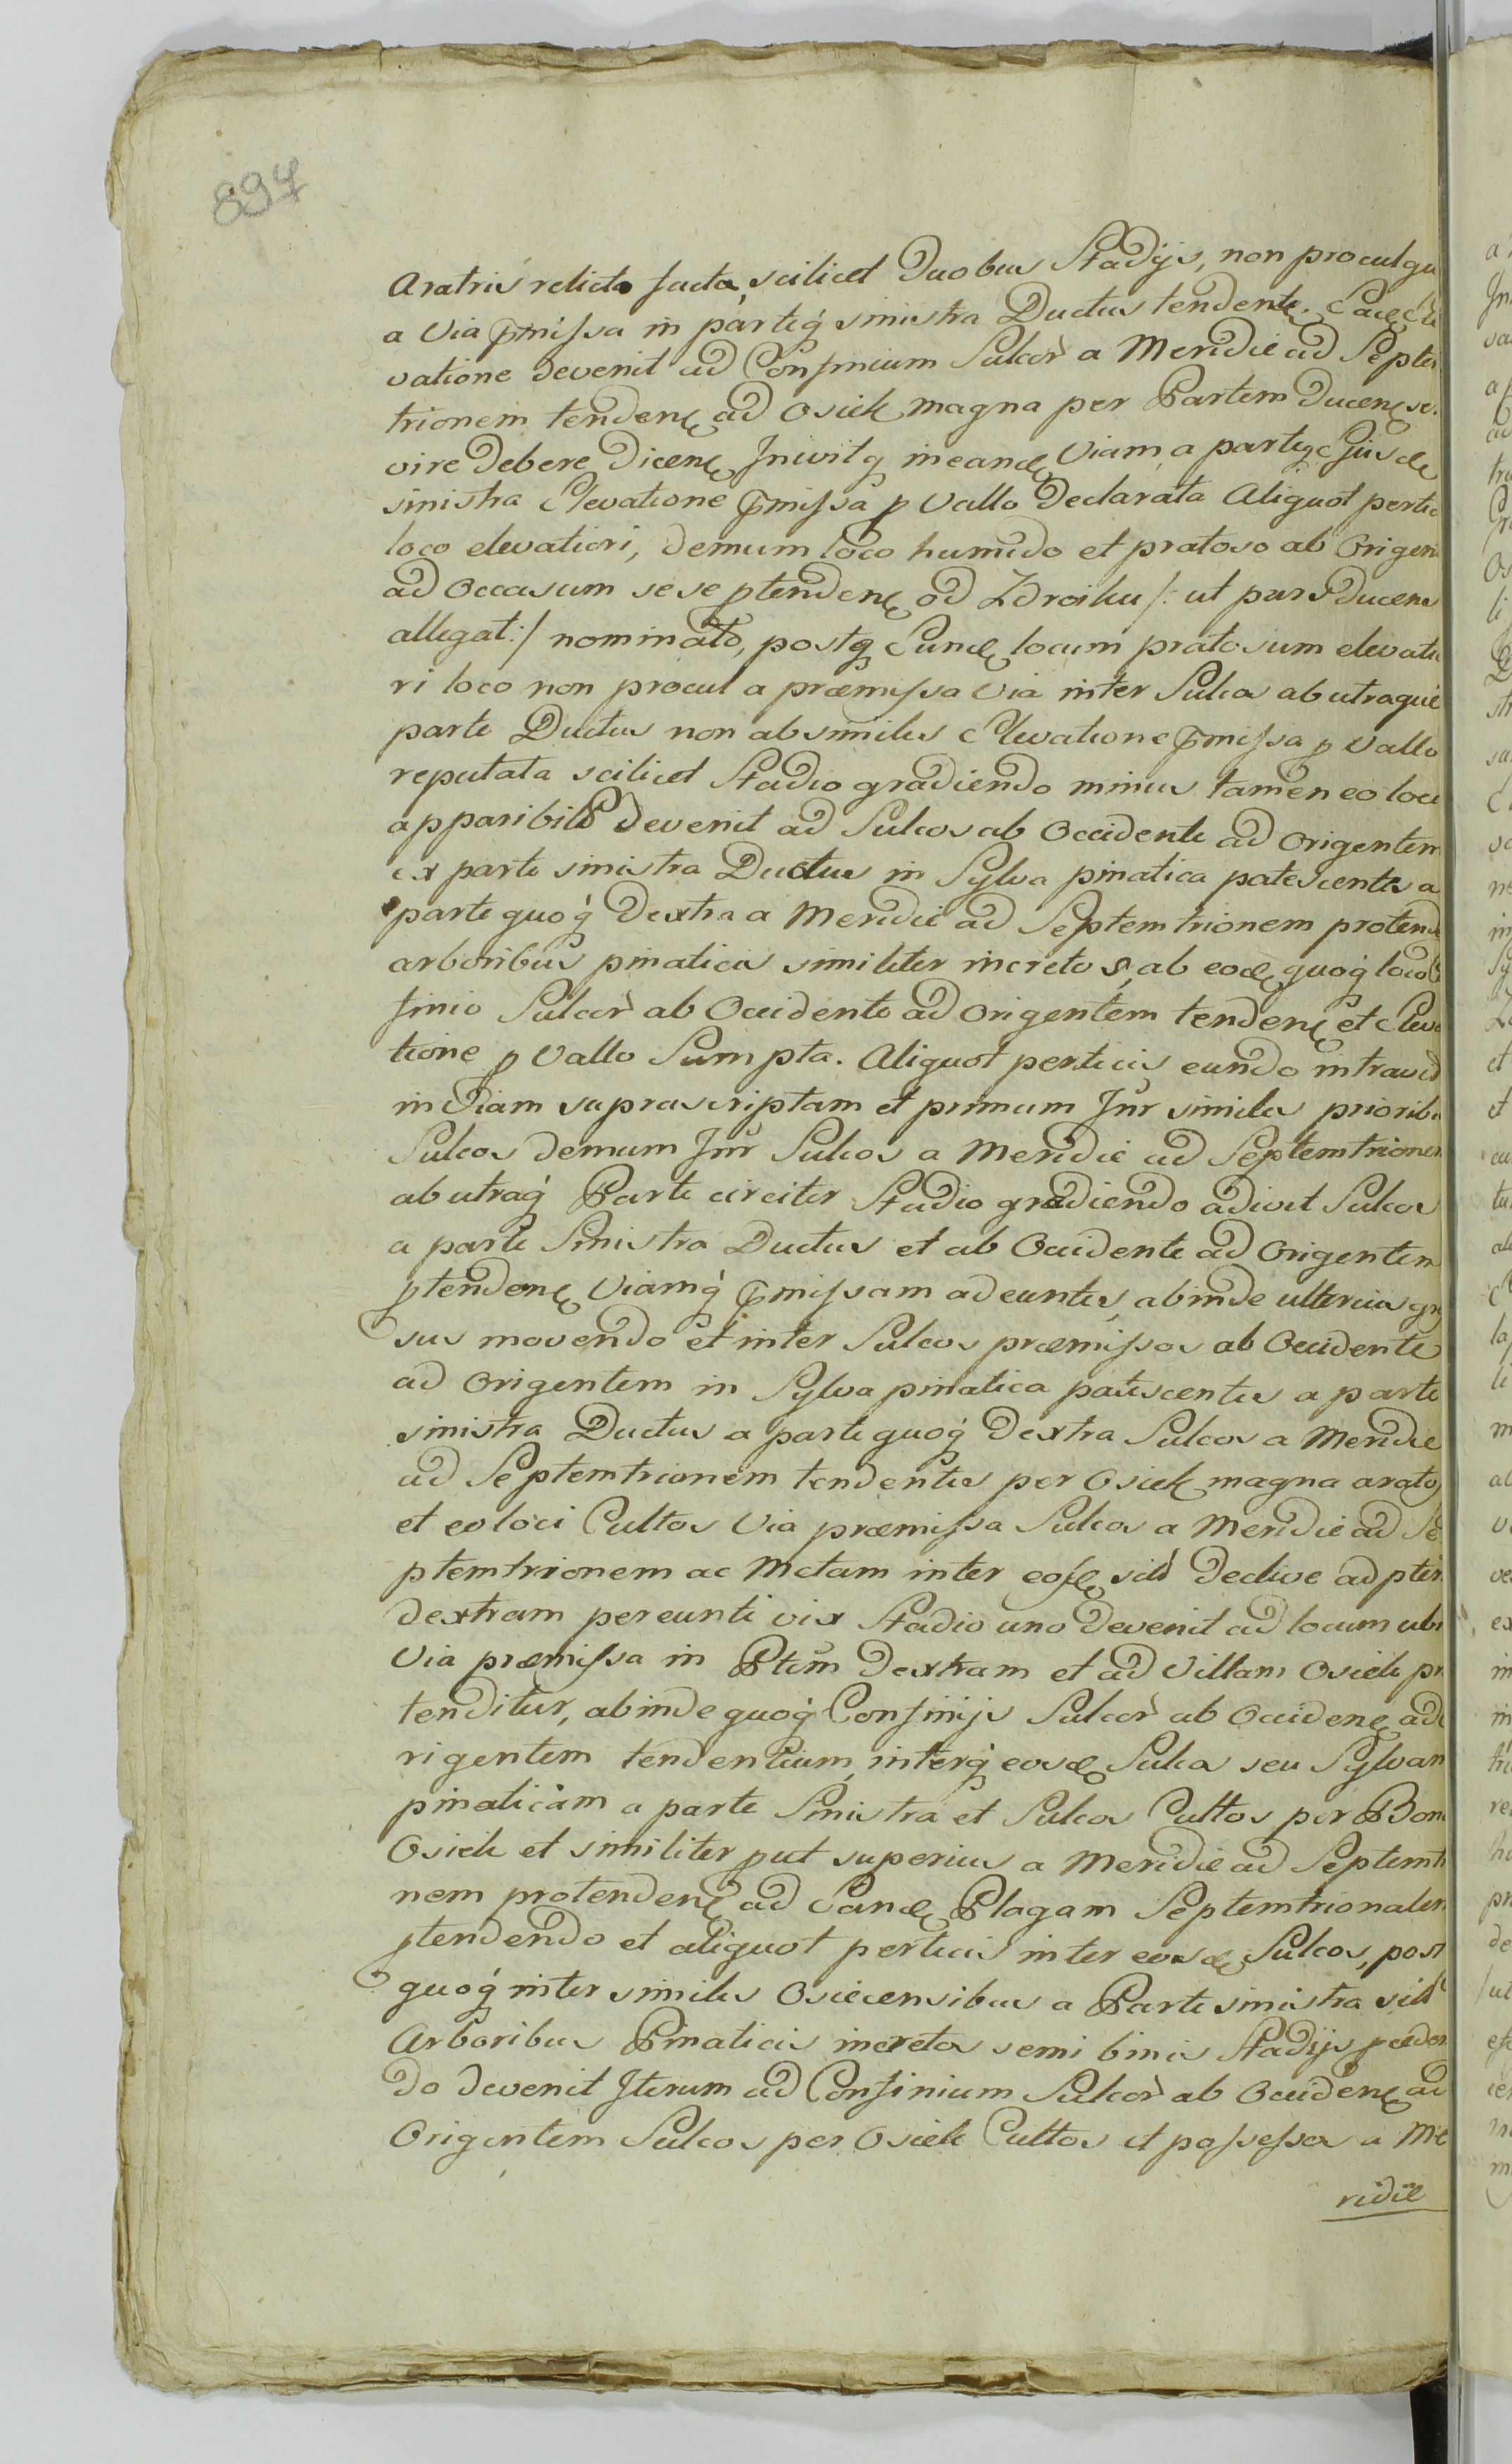 894
Aratris relicto facta, scilicet Duobus Stadijs, non procul qu
a Via pmissa in parteq́ sinistra Ductus tendente. Eadę Ele
vatione devenit ad Confinium Sulcor̀ a Meridie ad Septem
trionem tendenę ad Osiek magna per Partem Ducenę se
vire debere Dicenę Inivitq ineandę Viam a parteq Ejusdę
sinistra Elevatione pmissa p Vallo Declarata Aliquot pertic
loco elevatiori, demum loco humido et pratoso ab Origen
ad Occasum sese ptendenę od Zdroiku /: ut pars Ducens
allegat :/ nominato, postq Eundę locum pratosum elevatio
ri loco non procul a præmissa Via inter Sulcos ab utraque
parte Ductus non absimiles Elevatione pmissa p Vallo
reputata scilicet Stadio gradiendo minus tamen eo loci
apparibili devenit ad Sulcos ab Occidente ad Origentem
ex parte sinistra Ductus in Sylva pinatica patescentes a
parte quoq́ Dextra a Meridie ad Septemtrionem protend
arboribus pinaticis similiter incretos, ab eodę quoq́ loco C
finio Sulcor̀ ab Occidente ad Origentem tendenę et Eleva
tione p Vallo Sumpta. Aliquot perticis eundo intravit
in Viam suprascriptam et primum Intr similes priorib
Sulcos demum Intr Sulcos a Meridie ad Septemtrionem
ab utraq́ Parte circiter Stadio gradiendo adivit Sulcos
a parte Sinistra Ductus et ab Occidente ad Origentem
ptendenę Viamq́ pmissam adeuntes, abinde ulterius gre
sus movendo et inter Sulcos præmissos ab Occidente
ad Origentem in Sylva pinatica patescentes a parte
sinistra Ductus a parte quoq́ Dextra Sulcos a Meridie
ad Septemtrionem tendentes per Osiek magna aratos
et eo loci Cultos Via præmissa Sulcos a Meridie ad Se
ptemtrionem ac Metam inter eosdę scilt Declive ad ptem
dextram pereunti vix Stadio uno devenit ad locum ubi
Via præmissa in Ptem Dextram et ad Villam Osiek pro
tenditur, abinde quoq́ Confinijs Sulcor̀ ab Occidenę ad O
rigentem tendentium, interq́ eosdę Sulcos seu Sylvam
pinaticam a parte Sinistra et Sulcos Cultos per Bona
Osiek et similiter put superius a Meridie ad Septemtr
nem protendenę ad Eandę Plagam Septemtrionalem
ptendendo et aliquot perticis inter eosdę Sulcos, post
quoq́ inter similes Osiecensibus a Parte sinistra scilt
Arboribus Pinaticis incretos semi binis Stadijs pceden
do devenit Iterum ad Confinium Sulcor̀ ab Occidenę ad
Origentem Sulcos per Osiek Cultos et possessos a Me
ridie